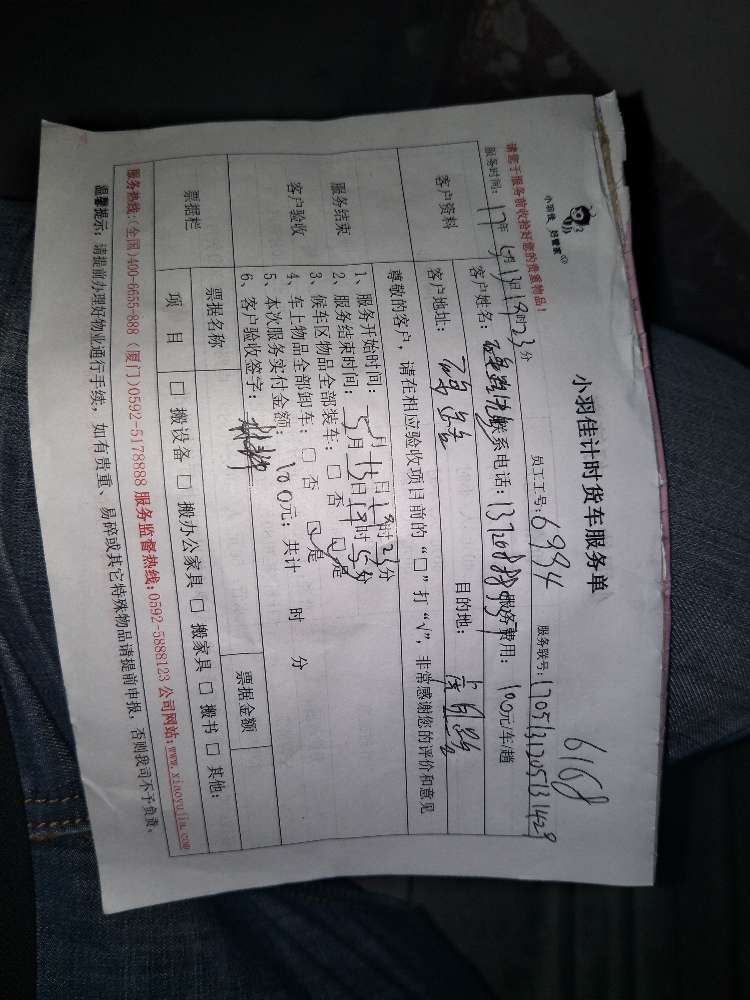 小羽佳 好管家
小羽佳计时货车服务单
6168
请您于服务前收拾好您的贵重物品!
员工工号: 6994 服务联号: 1705131205131428
服务时间: 17年 5月 13日 18时 23分
客户资料 客户姓名: 联系电话: 服务费用: 100元/车/趟
客户地址: 目的地:
尊敬的客户,请在相应验收项目前的“□”打“√”,非常感谢您的评价和意见
服务结束
客户验收
1、服务开始时间: 月 日 18时 23分
2、服务结束时间: 5月 13日 19时 15分
3、候车区物品全部装车: □ 否 □ 是
4、车上物品全部卸车: □ 否 □ 是
5、本次服务实付金额: 100元; 共计 时 分
6、客户验收签字:
票据栏 票据名称 票据金额
项 目 □ 搬设备 □ 搬办公家具 □ 搬家具 □ 搬书 □ 其他:
服务热线:(全国)400-6655-888 (厦门)0592-5178888 服务监督热线:0592-5888123 公司网站:www.xiaoyujia.com
温馨提示: 请提前办理好物业通行手续, 如有贵重、易碎或其它特殊物品请提前申报, 否则我司不予负责。